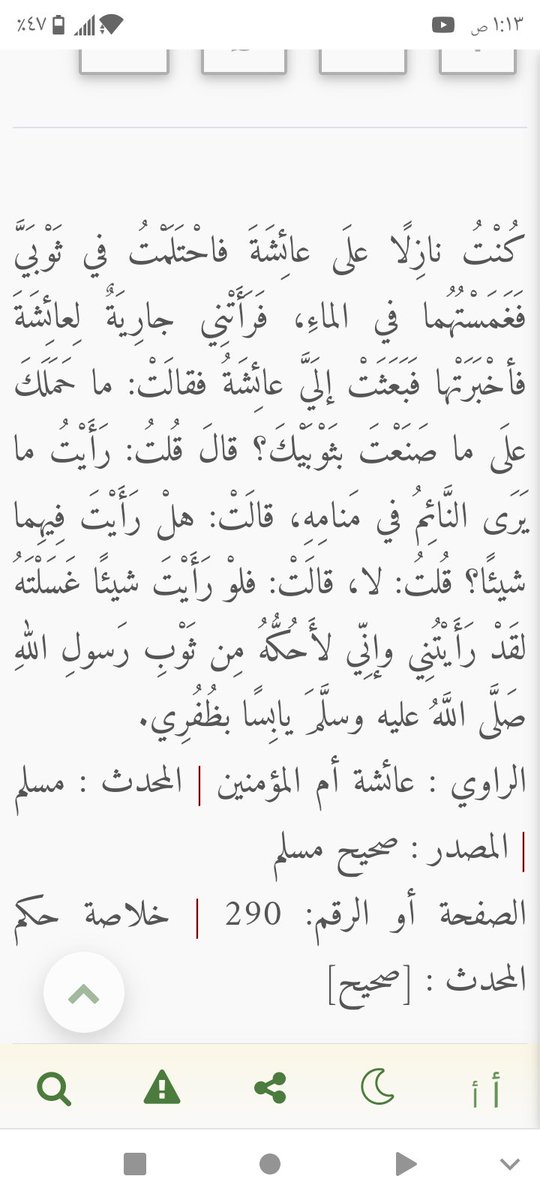 ١:١٣ ص
٤٧٪
كُنْتُ نازِلًا علَى عائِشَةَ فاحْتَلَمْتُ في ثَوْبَيَّ
فَغَمَسْتُهُما في الماءِ، فَرَأَتْنِي جارِيَةٌ لِعائِشَةَ
فأخْبَرَتْها فَبَعَثَتْ إلَيَّ عائِشَةُ فقالَتْ: ما حَمَلَكَ
علَى ما صَنَعْتَ بثَوْبَيْكَ؟ قالَ قُلتُ: رَأَيْتُ ما
يَرَى النَّائِمُ في مَنامِهِ، قالَتْ: هلْ رَأَيْتَ فِيهِما
شيئًا؟ قُلتُ: لا، قالَتْ: فلوْ رَأَيْتَ شيئًا غَسَلْتَهُ
لقَدْ رَأَيْتُنِي وإنِّي لأَحُكُّهُ مِن ثَوْبِ رَسولِ اللهِ
صَلَّى اللَّهُ عليه وسلَّمَ يابِسًا بظُفُرِي.
الراوي : عائشة أم المؤمنين | المحدث : مسلم
| المصدر : صحيح مسلم
الصفحة أو الرقم: 290 | خلاصة حكم
المحدث : [صحيح]
أ أ